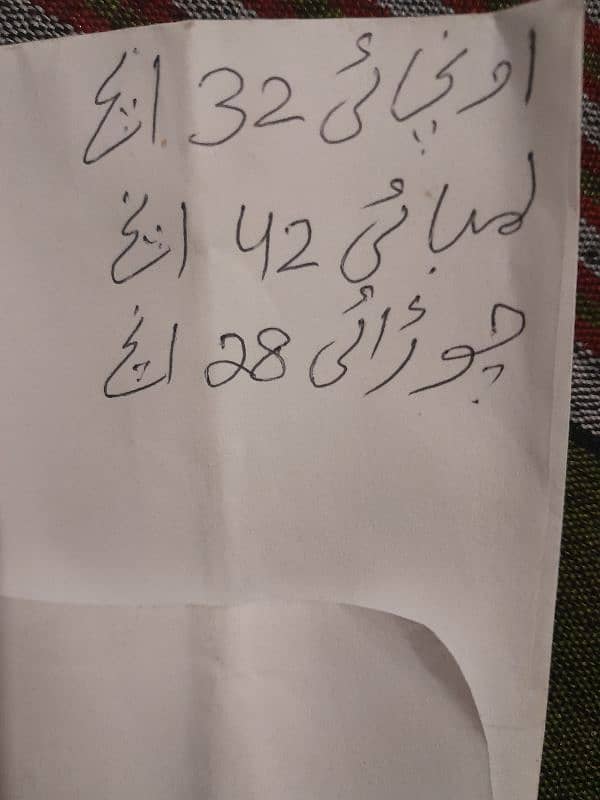 اونچائی 32 انچ
لمبائی 42 انچ
چوڑائی 28 انچ